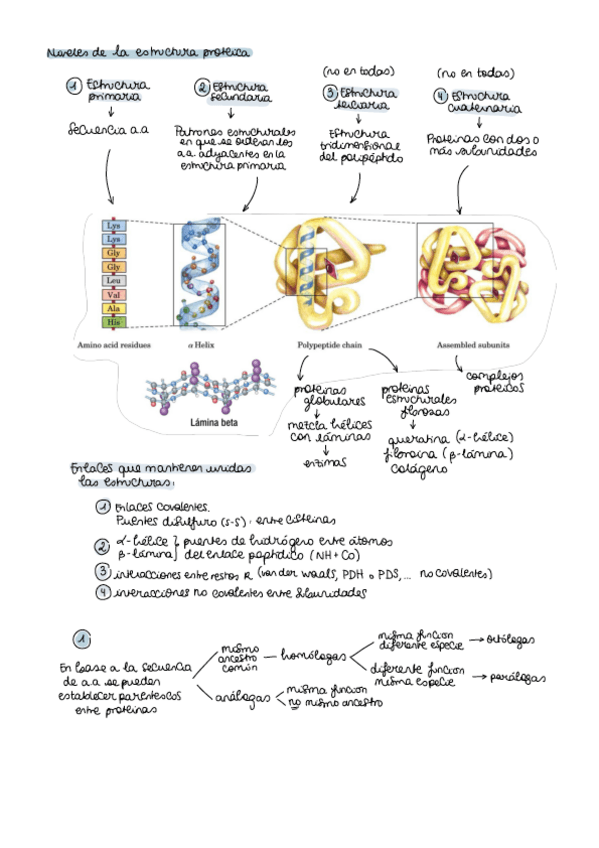 Niveles de la estructura proteica
① Estructura
primaria
↓
Secuencia a.a
② Estructura
secundaria
↓
Patrones estructurales
en que se ordenan los
a.a. adyacentes en la
estructura primaria
(no en todas)
③ Estructura
terciaria
↓
Estructura
tridimensional
del polipéptido
(no en todas)
④ Estructura
cuaternaria
↓
Proteínas con dos o
más subunidades
Lys
Lys
Gly
Gly
Leu
Val
Ala
His
Amino acid residues
α Helix
Polypeptide chain
Assembled subunits
Lámina beta
proteínas
globulares
↓
mezcla hélices
con láminas
↓
enzimas
proteínas
estructurales
fibrosas
↓
queratina (α-hélice)
fibroína (β-lámina)
colágeno
complejos
proteicos
Enlaces que mantienen unidas
las estructuras:
① Enlaces covalentes.
Puentes disulfuro (S-S): entre cisteínas
② α-hélice } puentes de hidrógeno entre átomos
β-lámina } del enlace peptídico (NH+CO)
③ interacciones entre restos R (van der waals, PDH o PDS,... no covalentes)
④ interacciones no covalentes entre subunidades
①
En base a la secuencia
de a.a se pueden
establecer parentescos
entre proteínas
mismo
ancestro
común
homólogas
misma función
diferente especie → ortólogas
diferente función
misma especie → parálogas
análogas
misma función
no mismo ancestro